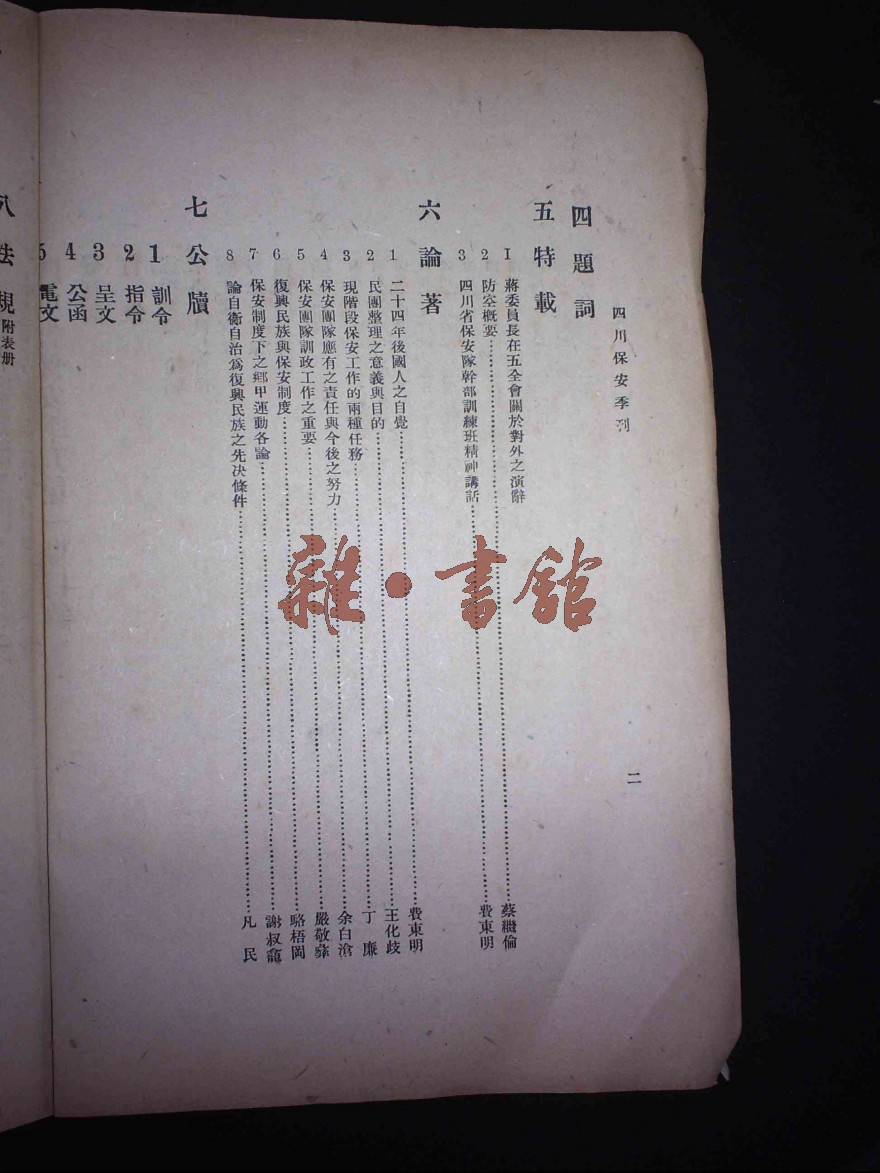 四川保安季刊
二
四 題詞
五 特載
1 蔣委員長在五全會關於對外之演辭
2 防空概要……蔡繼倫
3 四川省保安隊幹部訓練班精神講話……費東明
六 論著
1 二十四年後國人之自覺……費東明
2 民團整理之意義與目的……王化歧
3 現階段保安工作的兩種任務……丁廉
4 保安團隊應有之責任與今後之努力……余白滄
5 保安團隊訓政工作之重要……嚴敬彝
6 復興民族與保安制度……駱梧岡
7 保安制度下之鄉甲運動各論……謝叔龕
8 論自衛自治爲復興民族之先決條件……凡民
七 公牘
1 訓令
2 指令
3 呈文
4 公函
5 電文
八 法規附表册
雜·書館